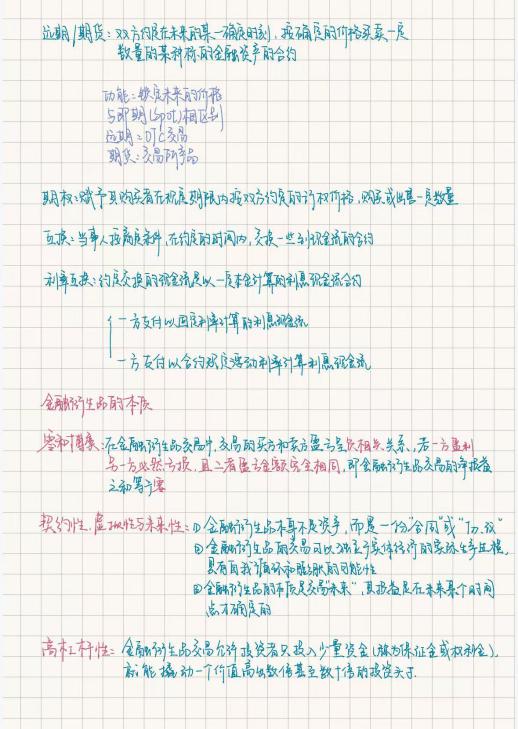 远期/期货：双方约定在未来的某一确定时刻，按确定的价格买卖一定
数量的某种标的金融资产的合约
功能：锁定未来的价格
与即期(Spot)相区别
远期：OTC交易
期货：交易所产品
期权：赋予其购买者在规定期限内按双方约定的行权价格，购买或出售一定数量
互换：当事人按商定条件，在约定的时间内，交换一些列现金流的合约
利率互换：约定交换的现金流是以一定本金计算的利息现金流合约
一方支付以固定利率计算的利息现金流
一方支付以合约规定浮动利率计算利息现金流
金融衍生品的本质
零和博弈：在金融衍生品交易中，交易的买方和卖方盈亏呈负相关关系，若一方盈利
另一方必然亏损，且二者盈亏金额完全相同，即金融衍生品交易的净损益
之和等于零
契约性、虚拟性与未来性：① 金融衍生品本身不是资产，而是一份“合同”或“协议”
② 金融衍生品的交易可以独立于实体经济的实际生产过程，
具有自我循环和膨胀的可能性
③ 金融衍生品的本质是交易“未来”，其损益是在未来某个时间
点不确定的
高杠杆性：金融衍生品交易允许投资者只投入少量资金(称为保证金或权利金)，
就能撬动一个价值高出数倍甚至数十倍的投资头寸.